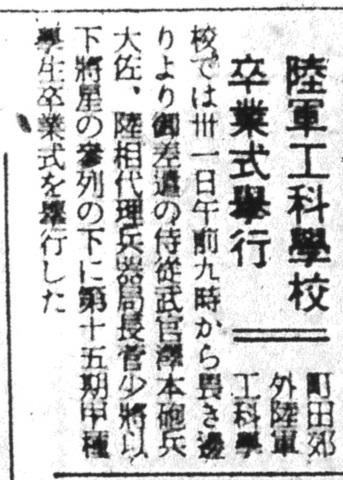 陸軍工科學校
卒業式擧行
町田郊
外陸軍
工科學
校では卅一日午前九時から畏き邊
りより御差遣の侍從武官澤本砲兵
大佐、陸相代理兵器局長菅少將以
下將星の參列の下に第十五期甲種
學生卒業式を擧行した